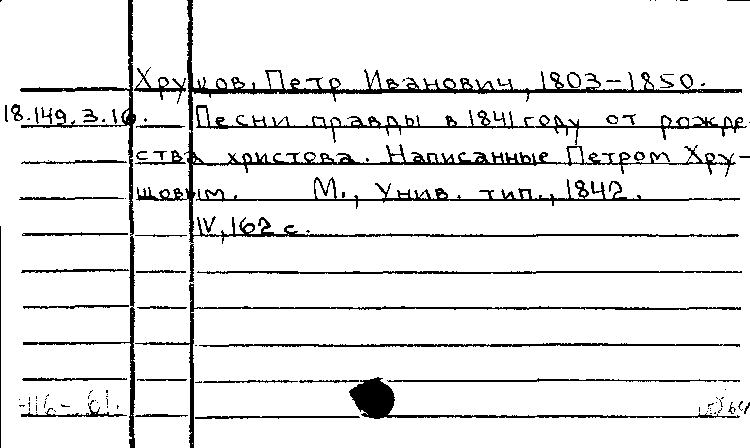 Хрущов, Петр Иванович, 1803-1850.
18.149.3.16. Песни правды в 1841 году от рожде-
ства христова. Написанные Петром Хру-
щовым. М., Унив. тип., 1842.
IV, 162 с.
416-61.